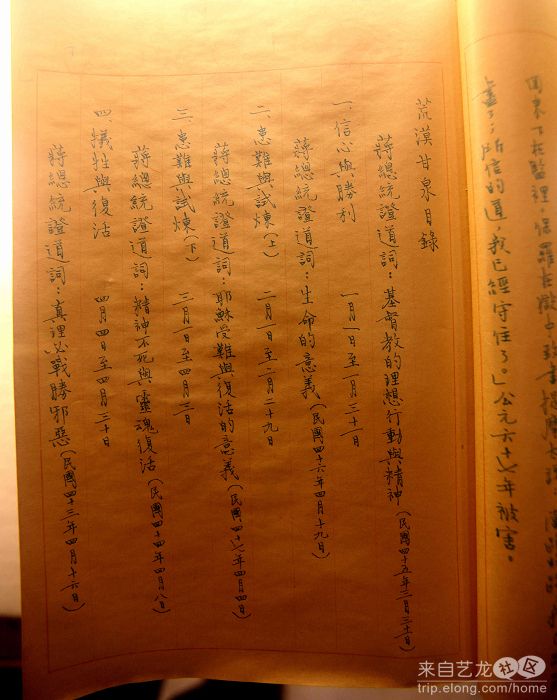 回來下在監裡，保羅在
盡了；所信的道，我已經守住了。」公元六十七年被害。
荒漠甘泉目錄
蔣總統證道詞：基督教的理想行動與精神（民國四十五年三月三十日）
一、信心與勝利　一月一日至一月三十一日
蔣總統證道詞：生命的意義（民國四十六年四月十九日）
二、患難與試煉（上）　二月一日至二月二十九日
蔣總統證道詞：耶穌受難與復活的意義（民國四十七年四月四日）
三、患難與試煉（下）　三月一日至四月三日
蔣總統證道詞：精神不死與靈魂復活（民國四十四年四月八日）
四、犧牲與復活　四月四日至四月三十日
蔣總統證道詞：真理必戰勝邪惡（民國四十三年四月十六日）
来自艺龙社区
trip.elong.com/home